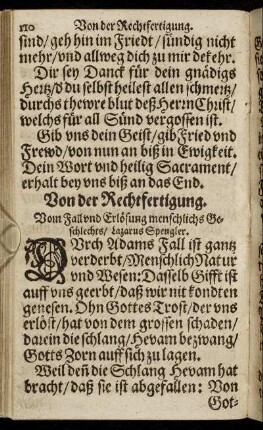 110 Von der Rechtfertigung.
sind/geh hin im Friedt/sündig nicht
mehr/vnd allweg dich zu mir bekehr.
Dir sey Danck für dein gnädigs
Hertz/ du selbst heilest allen schmertz/
durchs thewre blut deß Herrn Christ/
welchs für all Sünd vergossen ist.
Gib vns dein Geist/gib Fried vnd
Frewd/von nun an biß in Ewigkeit.
Dein Wort vnd heilig Sacrament/
erhalt bey vns biß an das End.
Von der Rechtfertigung.
Vom Fall vnd Erlösung menschlichs Ge-
schlechts/ Lazarus Spengler.
DUrch Adams Fall ist gantz
verderbt/Menschlich Natur
vnd Wesen: Dasselb Gifft ist
auff vns geerbt/daß wir nit kondten
genesen. Ohn Gottes Trost/der vns
erlöst/hat von dem grossen schaden/
darein die schlang/Hevam bezwang/
Gotts Zorn auff sich zu lagen.
Weil deñ die Schlang Hevam hat
bracht/daß sie ist abgefallen: Von
Got-